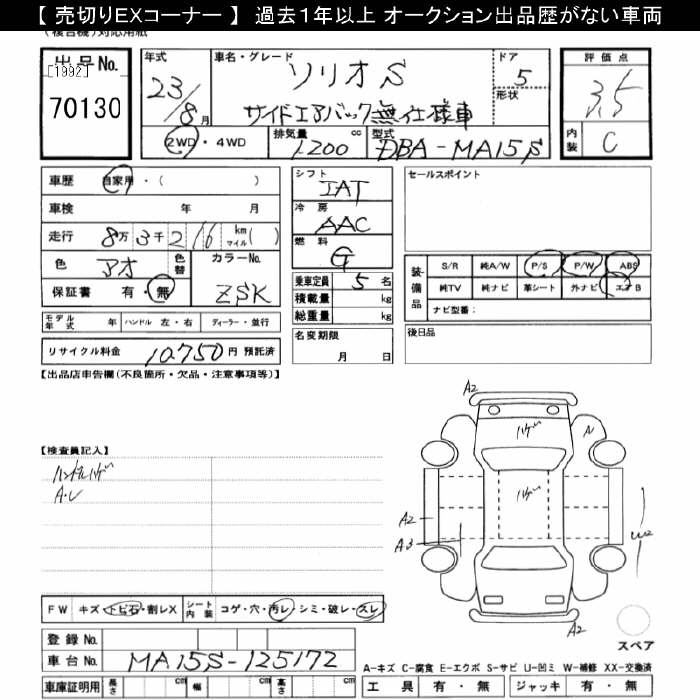 【 売切りEXコーナー 】 過去1年以上 オークション出品歴がない車両
出品No.
[1992]
70130
年式
23/8月
車名・グレード
ソリオS
サイドエアバック無仕様車
ドア
5
形状
評価点
3.5
内装
C
2WD・4WD
排気量 cc
1200
型式
DBA-MA15S
車歴 自家用・( )
車検 年 月
走行 8万3千216 km マイル( )
色 アオ 色替
カラーNo.
ZSK
保証書 有・無
モデル年式 年 ハンドル 左・右 ディーラー・並行
リサイクル料金 10,750円 預託済
シフト
IAT
冷房
AAC
燃料
G
乗車定員 5名
積載量 kg
総重量 kg
名変期限
月 日
セールスポイント
装備品
S/R 純A/W P/S P/W ABS
純TV 純ナビ 革シート 外ナビ エアB
ナビ型番:
後日品
【出品店申告欄(不良箇所・欠品・注意事項等)】
【検査員記入】
ハンドルハゲ
A・U
A2
ハゲ
A
ハゲ
A2
A3
W2
A2
スペア
FW キズ・トビ石・割レX シート内装 コゲ・穴・汚レ・シミ・破レ・スレ
登録No.
車台No. MA15S-125172
車庫証明用 長さ cm 幅 cm 高さ cm
A-キズ C-腐食 E-エクボ S-サビ U-凹ミ W-補修 XX-交換済
工具 有・無 ジャッキ 有・無